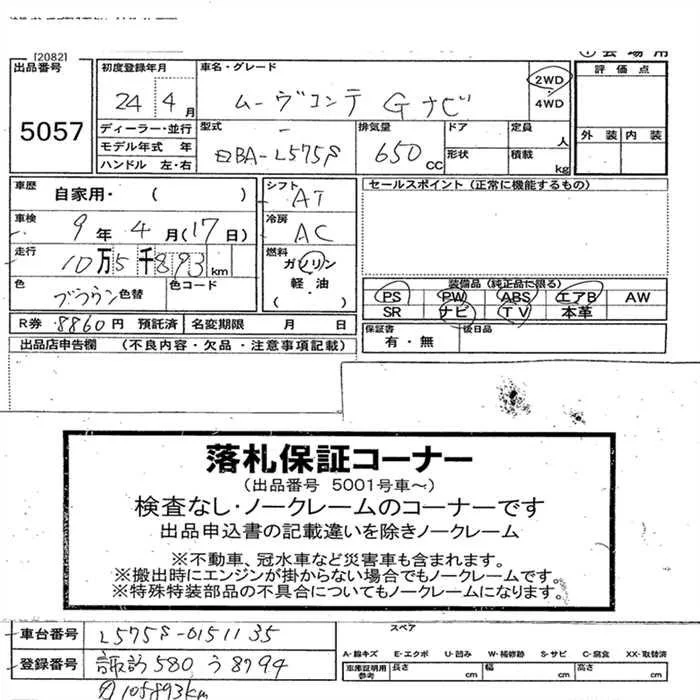 [2082]
① 会場用
出品番号 初度登録年月 車名・グレード
5057
24 4月 ムーヴコンテ Gナビ 2WD
4WD
評価点
外装 内装
ディーラー・並行
モデル年式 年
ハンドル 左・右
型式 DBA-L575S
排気量 650 CC
ドア 定員 人
形状 積載 kg
車歴 自家用・( )
車検 9年 4月(17日)
走行 10万5千893 km
色 ブラウン 色替 色コード
シフト AT
冷房 AC
燃料 ガソリン
軽・油
( )
セールスポイント (正常に機能するもの)
装備品 (純正品に限る)
PS PW ABS エアB AW
SR ナビ TV 本革
R券 8860円 預託済 名変期限 月 日
保証書 有・無 後日品
出品店申告欄 (不良内容・欠品・注意事項記載)
落札保証コーナー
(出品番号 5001号車～)
検査なし・ノークレームのコーナーです
出品申込書の記載違いを除きノークレーム
※不動車、冠水車など災害車も含まれます。
※搬出時にエンジンが掛からない場合でもノークレームです。
※特殊特装部品の不具合についてもノークレームになります。
車台番号 L575S-0151135
スペア
A-線キズ E-エクボ U-凹み W-補修跡 S-サビ C-腐食 XX-取替済
登録番号 諏訪 580 う 8794
車庫証明用参考 長さ cm 幅 cm 高さ cm
105893km